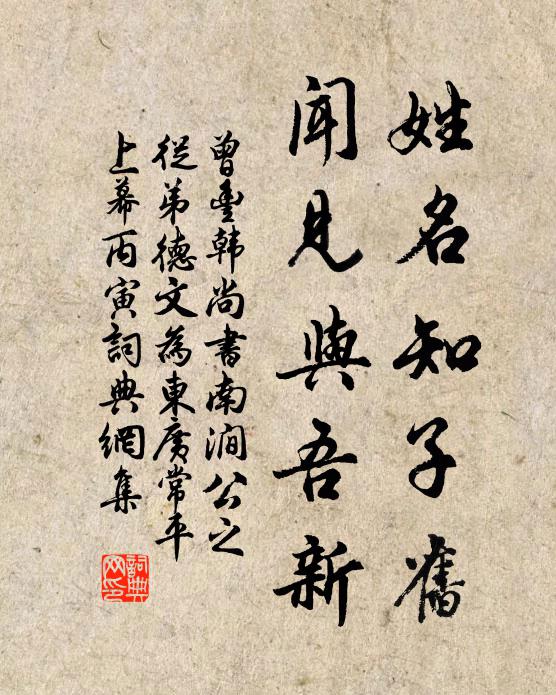 姓名知子舊
聞見與吾新
曾豐韩尚書南澗公之
從弟德文為東廣常平
上幕丙寅詞典網集
詞典
网印